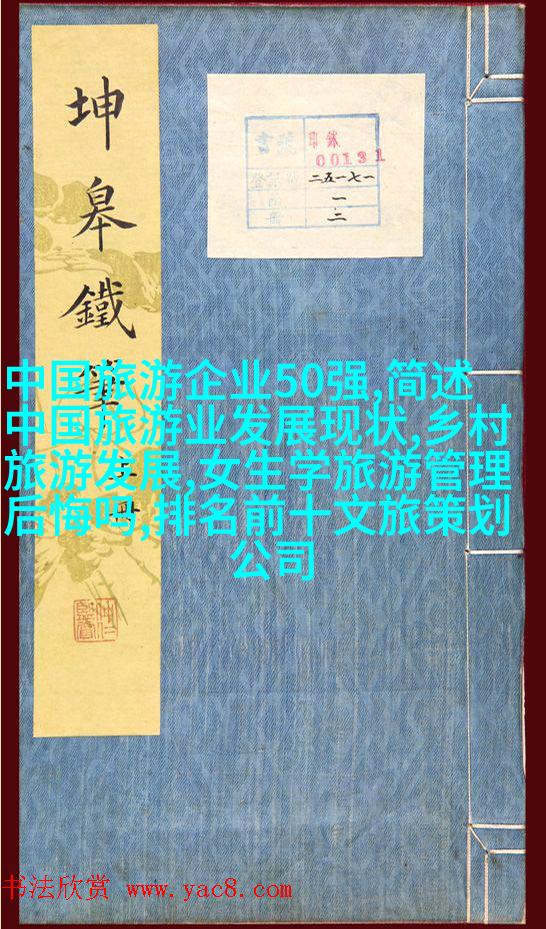 坤皋鐵筆
書號 印
00131
二五一七一
一
二
中国旅游企业50强,简述
中国旅游业发展现状,乡村
旅游发展,女生学旅游管理
后悔吗,排名前十文旅策划
公司
书法欣赏 www.yac8.com